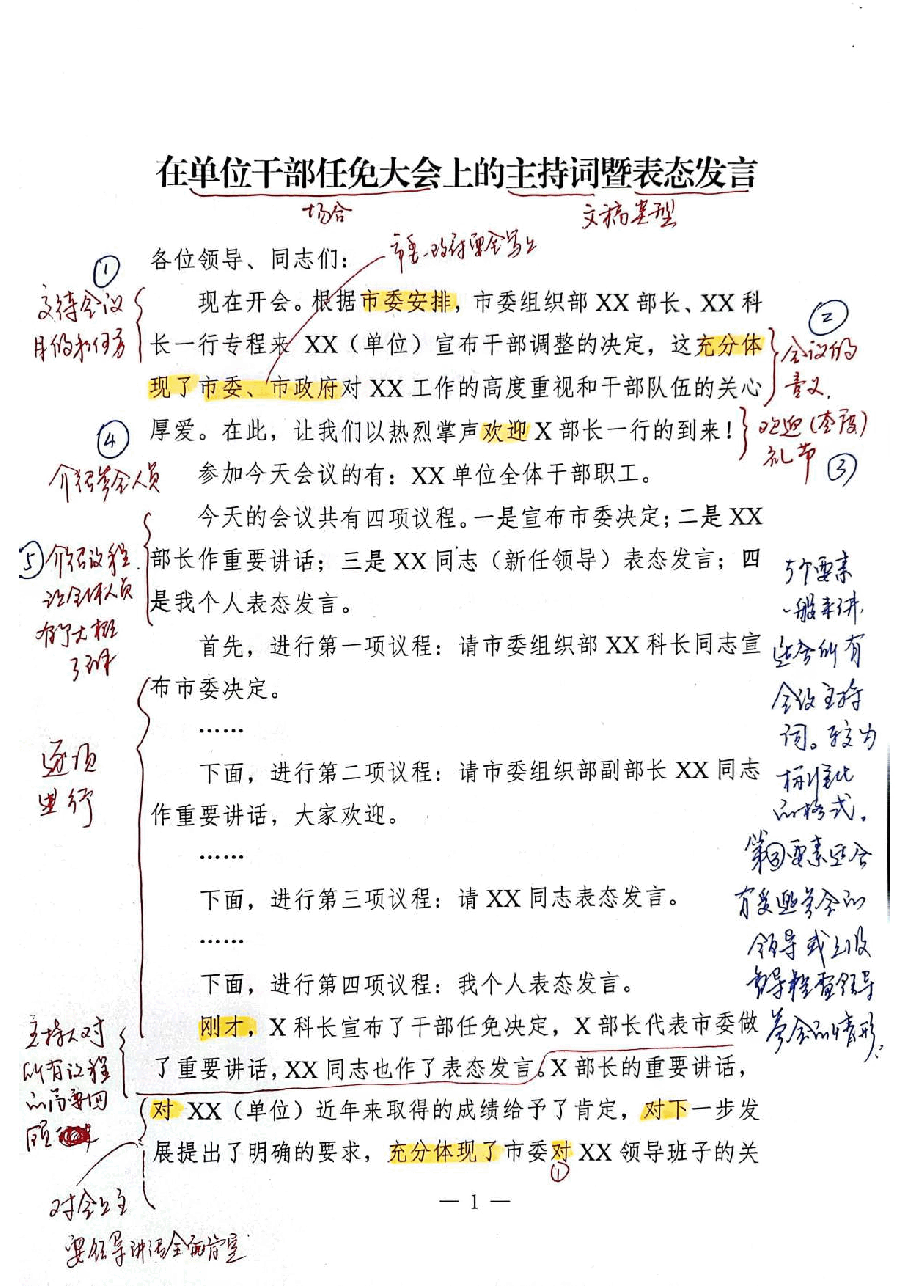 在单位干部任免大会上的主持词暨表态发言
场合
文稿类型
各位领导、同志们：
市委、政府要会写上
①
交待会议
目的和任务
现在开会。根据市委安排，市委组织部 XX 部长、XX 科
长一行专程来 XX（单位）宣布干部调整的决定，这充分体
现了市委、市政府对 XX 工作的高度重视和干部队伍的关心
厚爱。在此，让我们以热烈掌声欢迎 X 部长一行的到来！
②
会议的
意义
欢迎
礼节
③
④
介绍参会人员
参加今天会议的有：XX 单位全体干部职工。
今天的会议共有四项议程。一是宣布市委决定；二是 XX
部长作重要讲话；三是 XX 同志（新任领导）表态发言；四
是我个人表态发言。
⑤介绍议程
让全体人员
有个大概
了解
首先，进行第一项议程：请市委组织部 XX 科长同志宣
布市委决定。
……
下面，进行第二项议程：请市委组织部副部长 XX 同志
作重要讲话，大家欢迎。
……
下面，进行第三项议程：请 XX 同志表态发言。
……
下面，进行第四项议程：我个人表态发言。
逐项
进行
5个要素
一般来讲
适合所有
会议主持
词。较为
标准化
的格式，
第③要素适合
有受邀参会的
领导或上级
督导检查领导
参会的情形.
刚才，X 科长宣布了干部任免决定，X 部长代表市委做
了重要讲话，XX 同志也作了表态发言。X 部长的重要讲话，
对 XX（单位）近年来取得的成绩给予了肯定，对下一步发
展提出了明确的要求，充分体现了市委对 XX 领导班子的关
①
主持人对
所有议程
的简要回
顾
对会上主
要领导讲话全面肯定
— 1 —